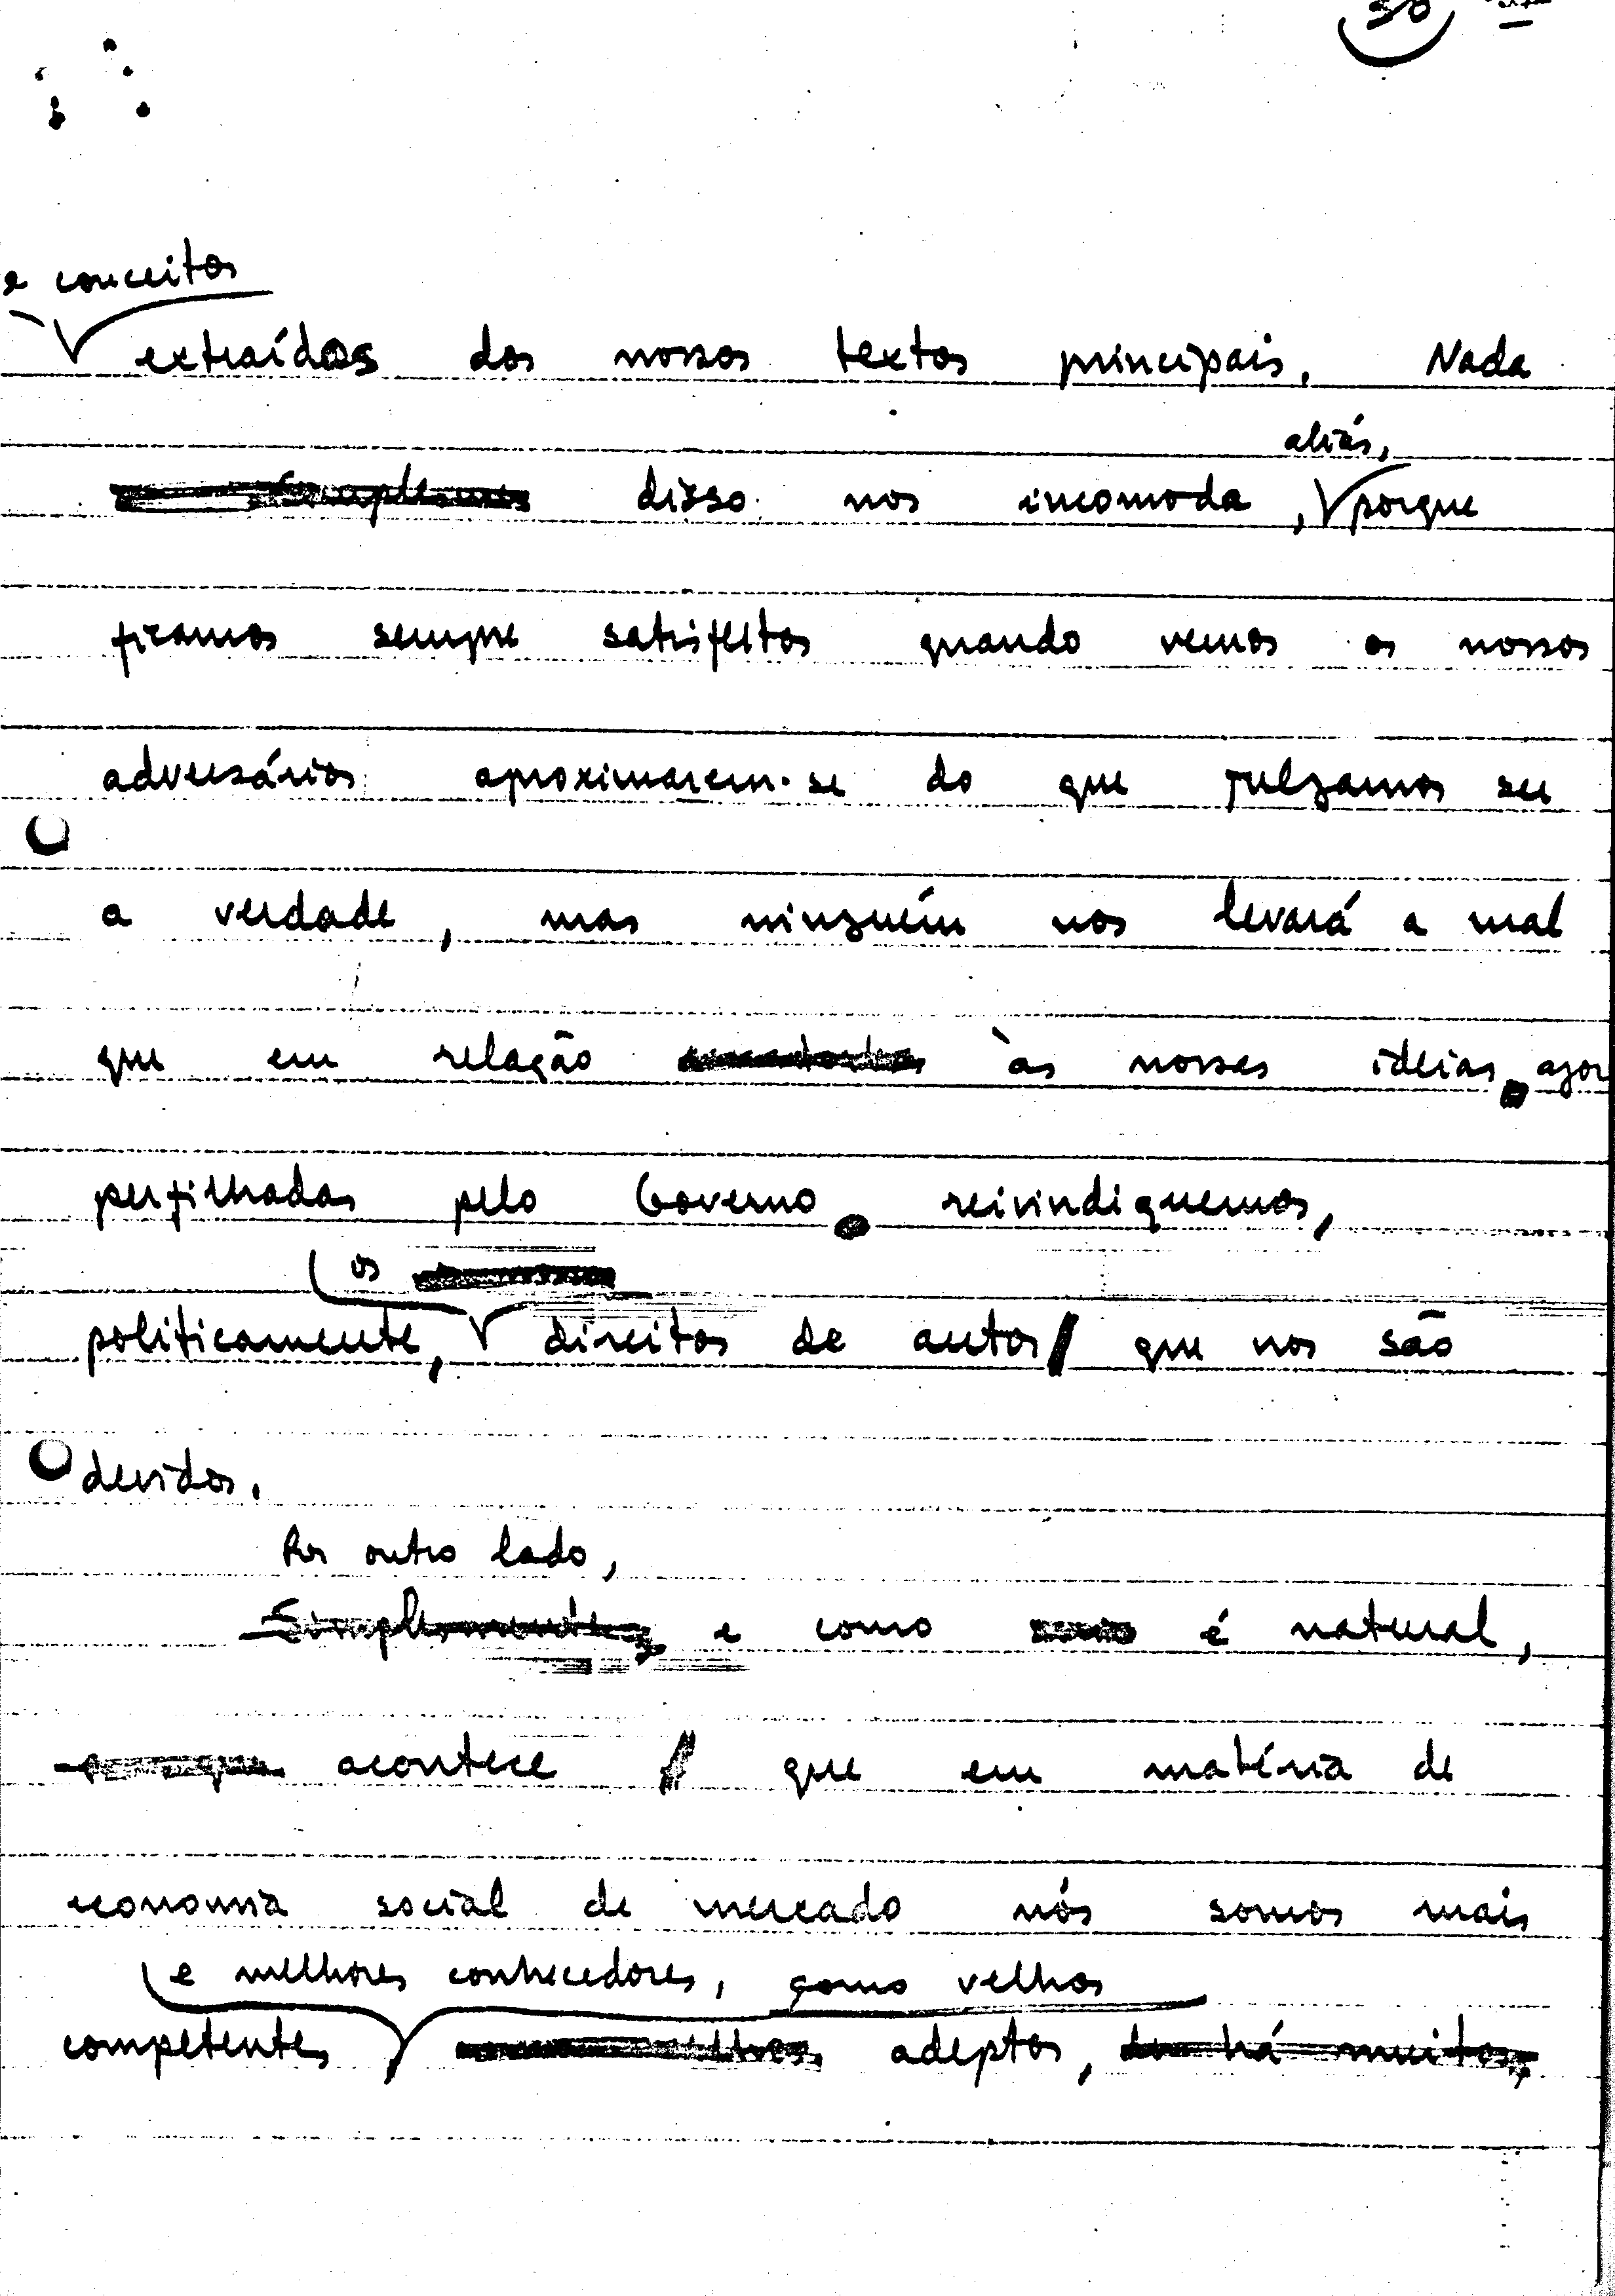 e conceitos
extraídos dos nossos textos principais. Nada
aliás,
disso nos incomoda, porque
ficamos sempre satisfeitos quando vemos os nossos
adversários aproximarem-se do que julgamos ser
a verdade, mas ninguém nos levará a mal
que em relação às nossas ideias agor
perfilhadas pelo Governo reivindiquemos,
os
politicamente, direitos de autor que nos são
devidos.
Por outro lado,
Simplesmente, e como é natural,
acontece que em matéria de
economia social de mercado nós somos mais
e melhores conhecedores, como velhos
competentes adeptos, há muito,